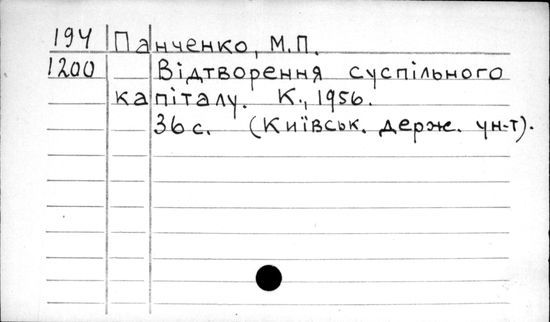 194 Панченко, М.П.
1200 Відтворення суспільного
капіталу. К., 1956.
36 с. (Київськ. держ. ун-т).